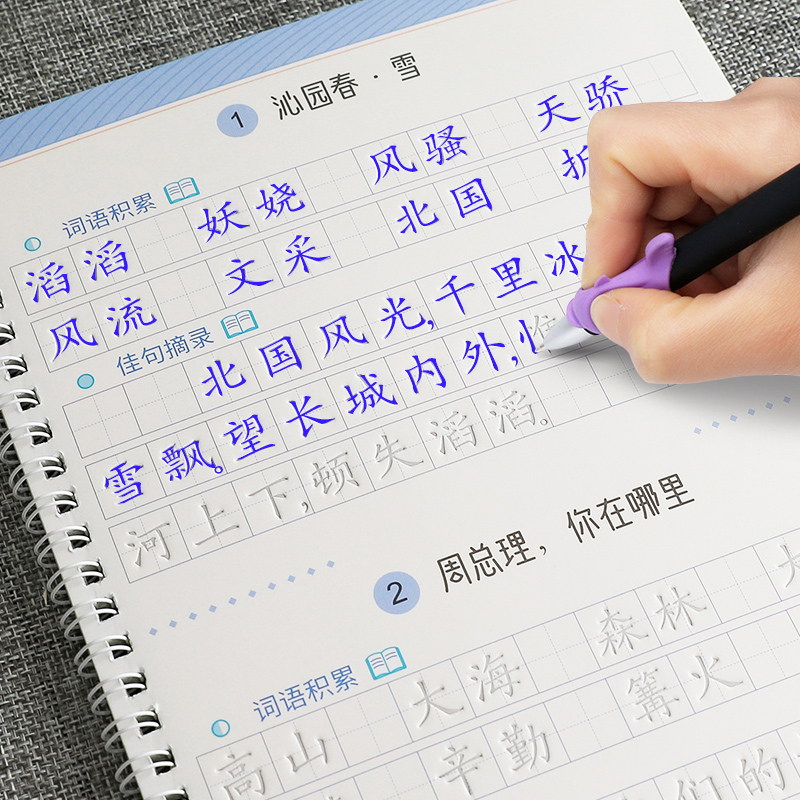 1 沁园春·雪
词语积累
滔滔 妖娆 风骚 天骄
风流 文采 北国 折
佳句摘录
北国风光,千里冰
雪飘。望长城内外,惟
河上下,顿失滔滔。
2 周总理，你在哪里
词语积累
高山 大海 森林 大
辛勤 篝火
们的